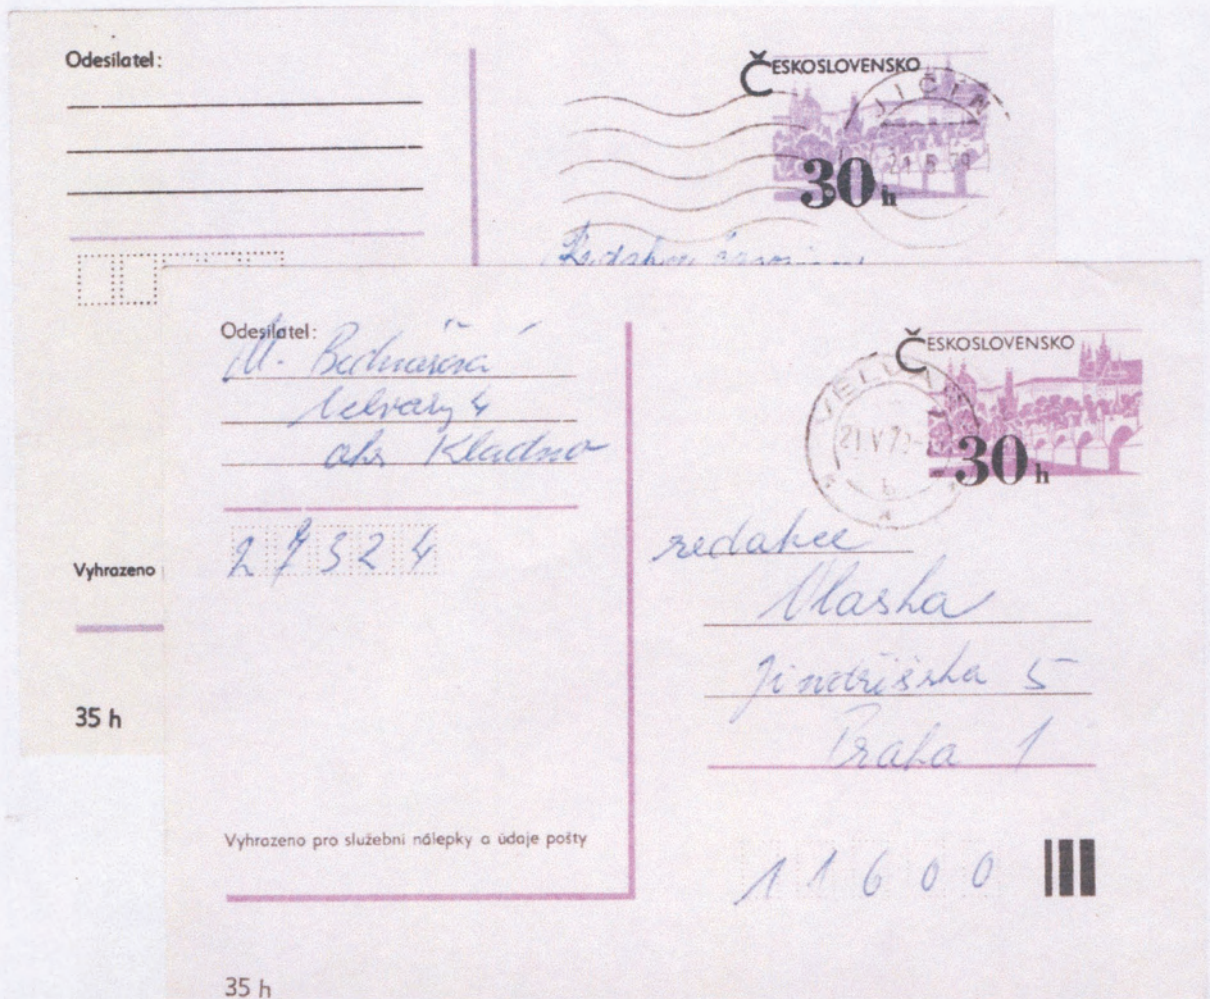 Odesílatel:
ČESKOSLOVENSKO
JIČÍN
21.5.79
30 h
Redakce
Vyhrazeno
35 h
Odesílatel:
M. Bednářová
Velvary 4
okr. Kladno
27324
ČESKOSLOVENSKO
VELVA
21.V.79
b
30 h
redakce
Vlasta
Jindřišská 5
Praha 1
11600
Vyhrazeno pro služební nálepky a údaje pošty
35 h